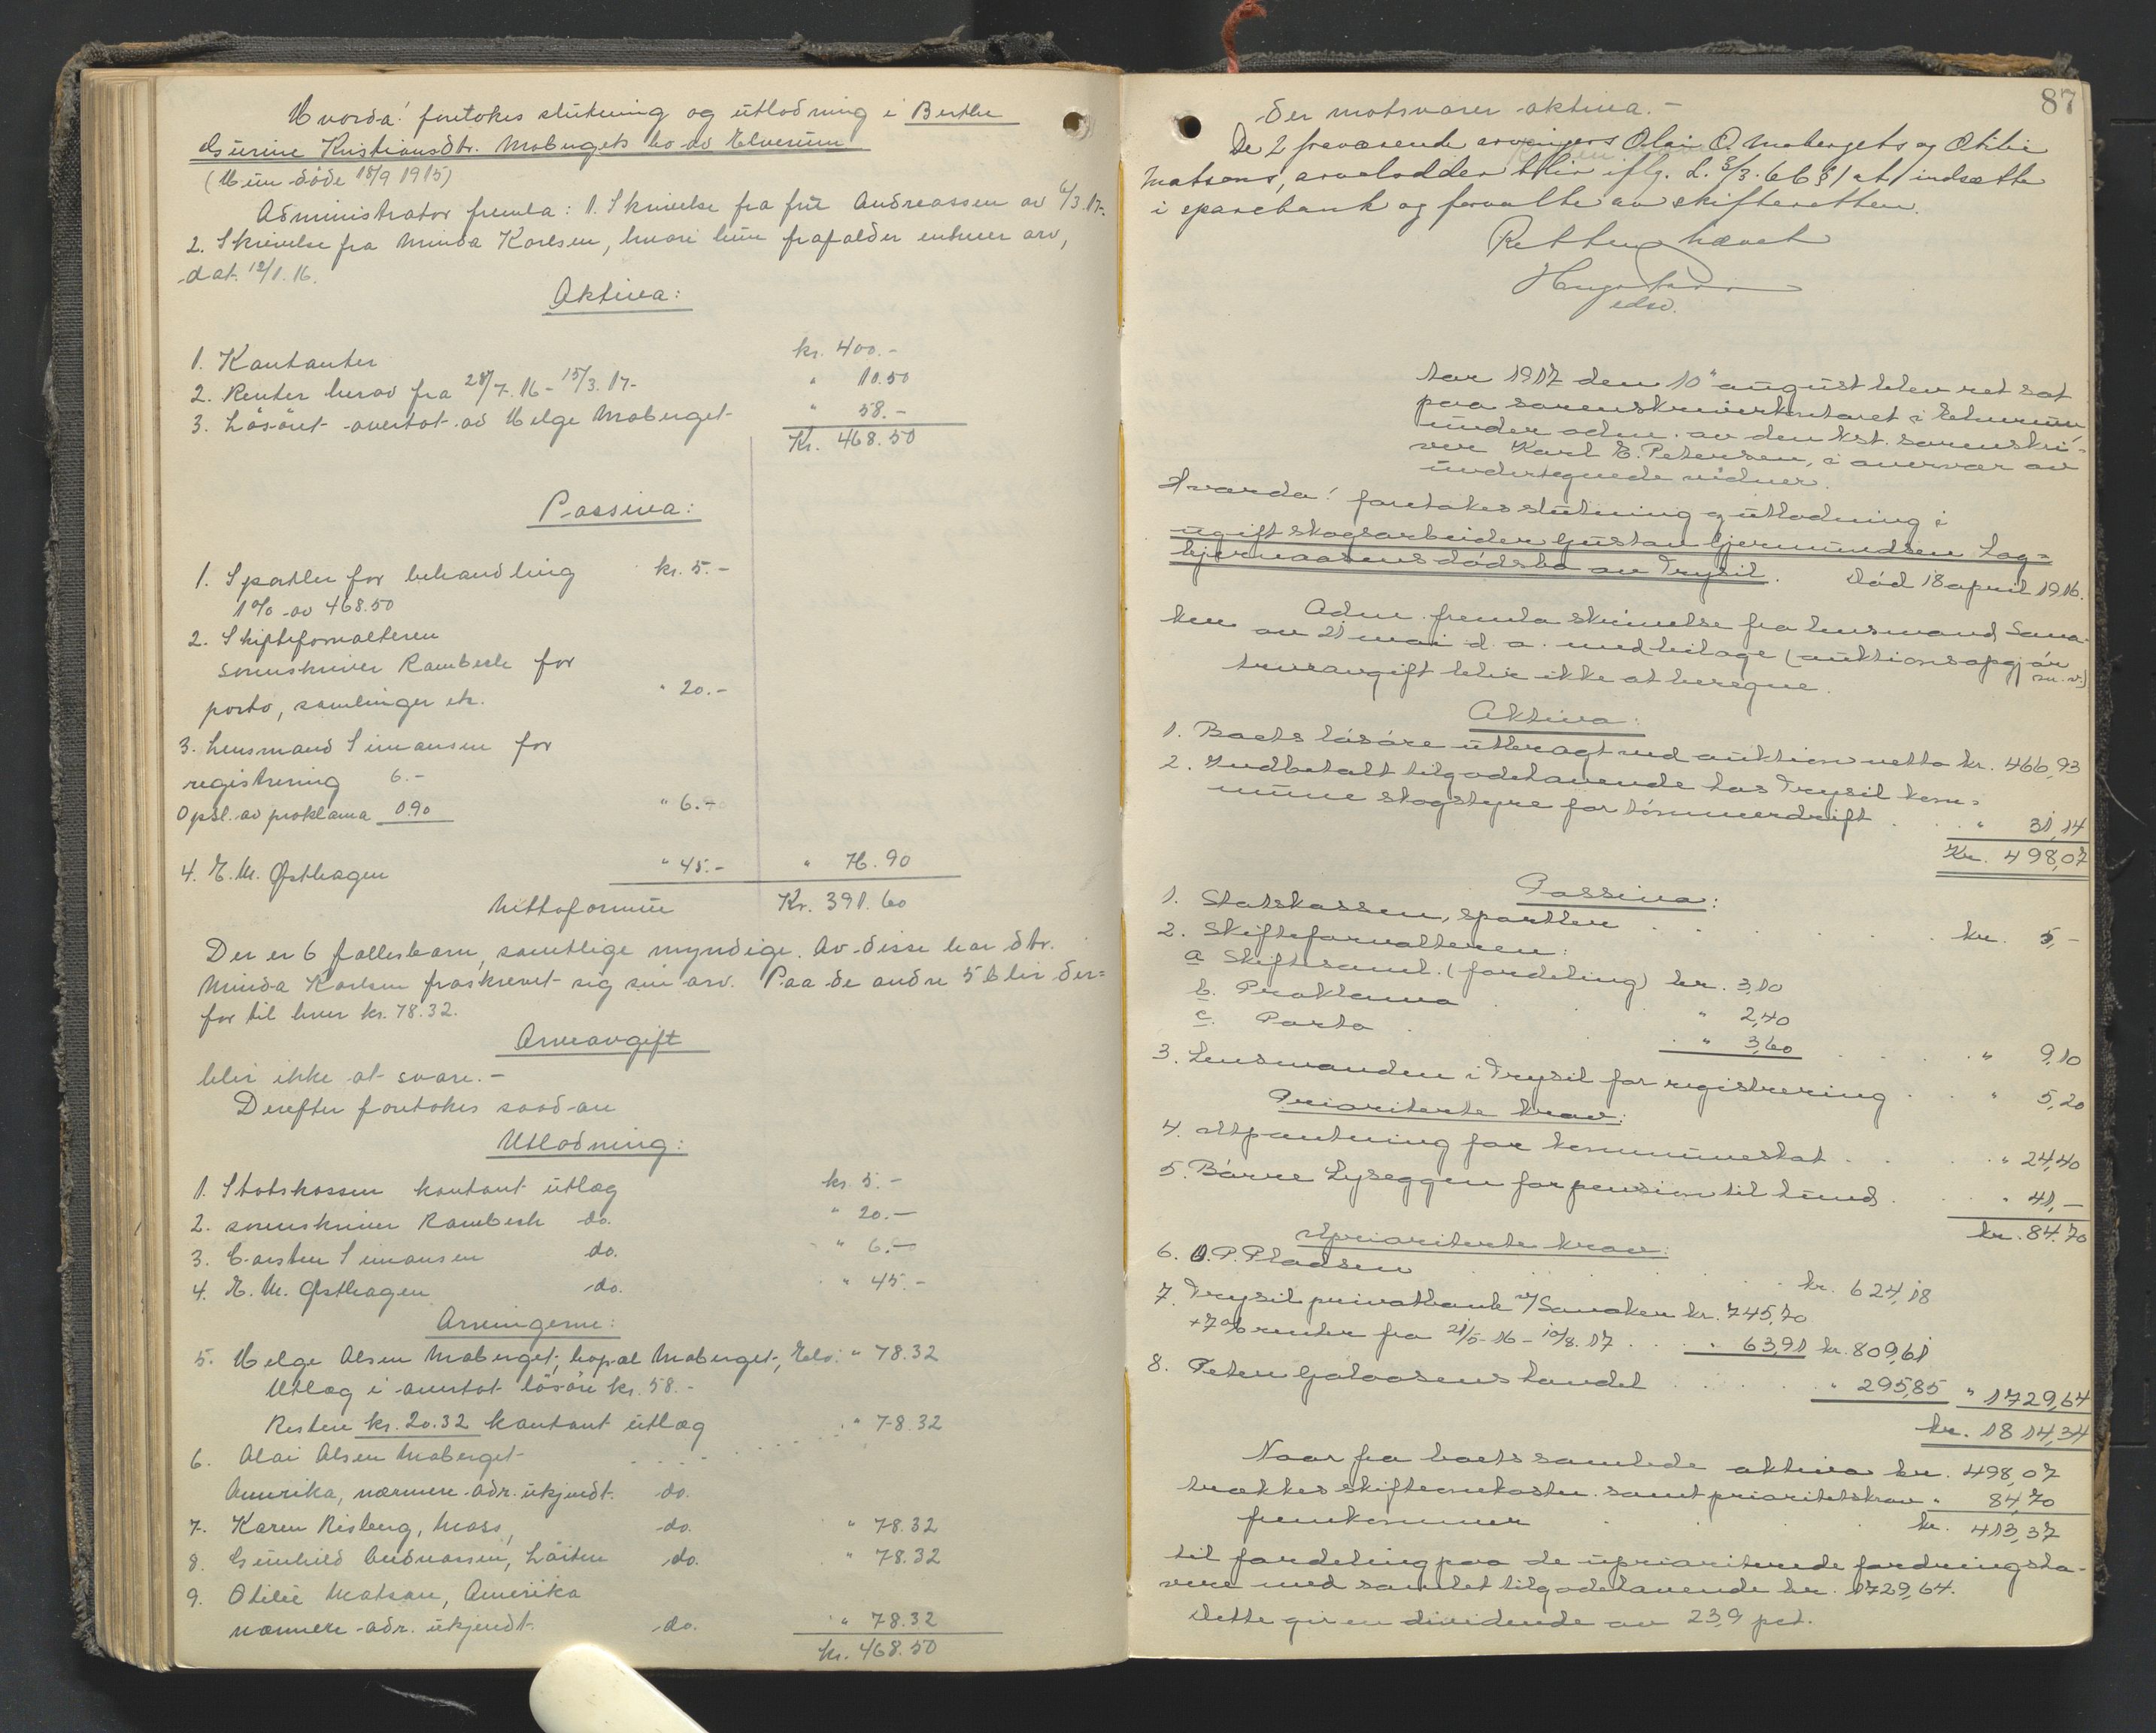 Hvorda! foretokes slutning og utlodning i Berthe
Gurine Kristiansdtr. Mobergets bo av Elverum
(Hun døde 18/9 1915)
Administrator fremla: 1. Skrivelse fra fru Andreassen av 6/3.17.
2. Skrivelse fra Minda Karlsen, hvori hun frafalder enhver arv,
dat. 12/1.16.
Aktiva:
1. Kontanter kr. 400.-
2. Renter herav fra 28/7.16 - 15/3.17- " 10.50
3. Løsøret overtat av Helge Moberget- " 58.-
Kr. 468.50
Passiva:
1. Sportler for behandling kr. 5.-
1% av 468.50
2. Skifteforvalteren
sorenskriver Rambech for
porto, samlinger etc. " 20.-
3. Lensmand Simansen for
registrering 6.-
Opsl. av proklama 0.90 " 6.90
4. E. M. Østhagen " 45.- " 76.90
Nettoformue Kr. 391.60
Der er 6 fællesbarn, samtlige myndige. Av disse har dtr.
Minda Karlsen fraskrevet sig sin arv. Paa de andre 5 blir der=
for til hver kr. 78.32.
Arveavgift
blir ikke at svare.-
Derefter foretokes saadan
Utlodning:
1. Statskassen kontant utlæg kr. 5.-
2. sorenskriver Rambech do. " 20.-
3. Carsten Simansen do. " 6.90
4. E. M. Østhagen do. " 45.-
Arvingerne:
5. Helge Olsen Moberget, bopæl Moberget, Elv. " 78.32
Utlæg i overtat løsøre kr. 58.-
Resten kr. 20.32 kontant utlæg
6. Olai Olsen Moberget " 78.32
Amerika, nærmere adr. ukjendt. do.
7. Karen Risberg, Moss, do. " 78.32
8. Gunhild Andreassen, Løiten do. " 78.32
9. Otilie Matson, Amerika
nærmere adr. ukjendt. do. " 78.32
kr. 468.50
87
der motsvarer aktiva.-
De 2 fraværende arvingers Olai O. Mobergets og Otilie
Matsons, arvelodder blir iflg. L. 3/3.66 § 1 at indsætte
i sparebank og forvalte av skifteretten.
Retten hævet
edsv.
Aar 1917 den 10" august blev ret sat
paa sorenskriverkontoret i Elverum
under adm. av den kst. sorenskri=
ver Karl E. Petersen, i overvær av
undertegnede vidner.
Hvorda! foretokes slutning og utlodning i
ugift skogsarbeider Gustav Gjermundsen Lag=
bjernaasens dødsbo av Trysil. Død 18 april 1916.
Adm. fremla skrivelse fra lensmand Sana
ken av 21 mai d. a. med bilage (auktionsopgjør
m. v.)
Arveavgift blir ikke at beregne.
Aktiva:
1. Boets løsøre utbragt ved auktion netto kr. 466,93
2. Indbetalt tilgodehavende hos Trysil kom=
mune skogstyre for tømmerdrift . . " 31,14
Kr. 498,07
Passiva:
1. Statskassen, sportler . . . . kr. 5,-
2. Skifteforvalteren:
a Skiftesaml. (fordeling) kr. 3,10
b. Proklama . . . " 2,40
c. Porto . . . " 3,60 . . . " 9,10
3. Lensmanden i Trysil for registrering . . " 5,20
Prioriterte krav:
4. Utpantning for kommuneskat . . . " 24,40
5. Børre Lyseggen for pension til hund . " 41,-
kr. 84.70
Uprioriterte krav:
6. O. P. Pladsen . . . kr. 624,18
7. Trysil privatbank v/ Sanaken kr. 745,70
+ 7% renter fra 21/5-16 - 10/8.17 . . " 63,91 kr. 809,61
8. Peter Galaasens handel . . . " 295,85 " 1729,64
kr. 1814,34
Naar fra boets samlede aktiva kr. 498,07
trækkes skifteomkostn. samt prioritetskrav " 84,70
fremkommer . . . kr. 413,37
til fordeling paa de uprioriterede fordringsha-
vere med samlet tilgodehavende kr. 1729,64.
Dette gir en dividende av 23,9 pct.